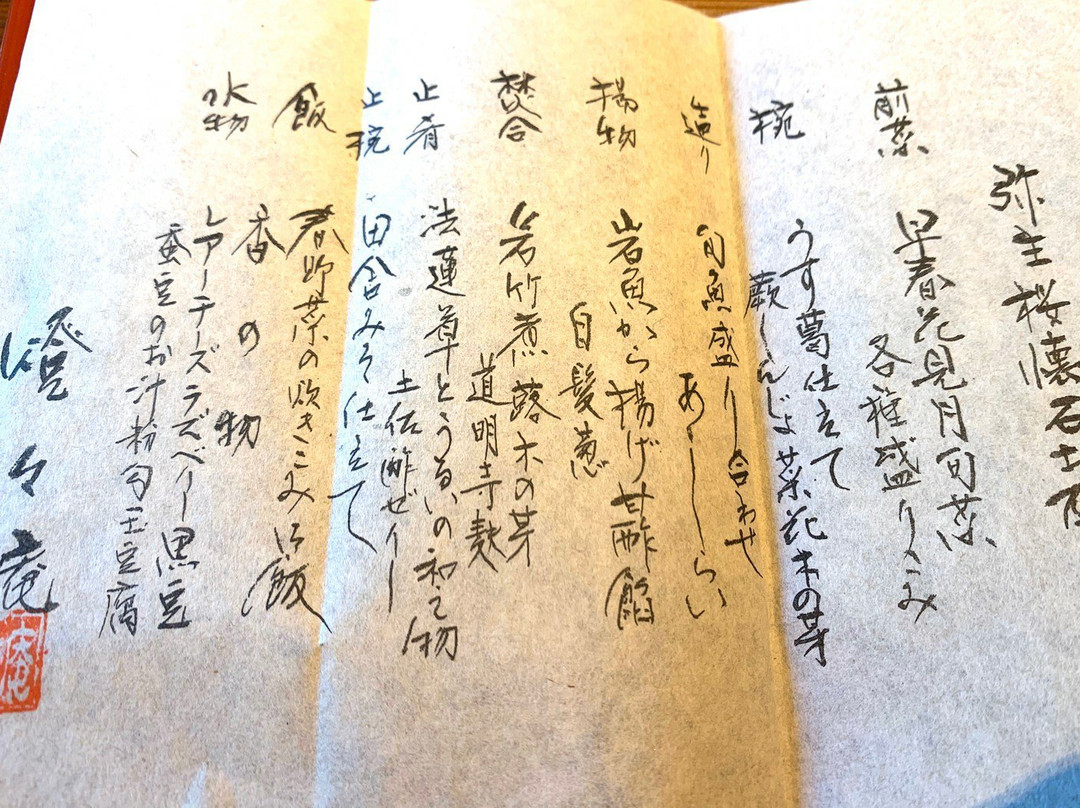 弥生桜懐石
前菜 早春花見月旬菜
各種盛りこみ
椀 うす葛仕立て
蕨しんじょ菜花木の芽
造り 旬魚盛り合わせ
あしらい
揚物 岩魚から揚げ甘酢餡
白髪葱
焚合 若竹煮蕗木の芽
道明寺麩
止肴 法蓮草とうるいの和え物
土佐酢ゼリー
止椀 田舎みそ仕立て
飯 春野菜の炊きこみご飯
香の物
水物 レアーチーズラズベリー黒豆
蚕豆のお汁粉勾玉豆腐
澄々庵